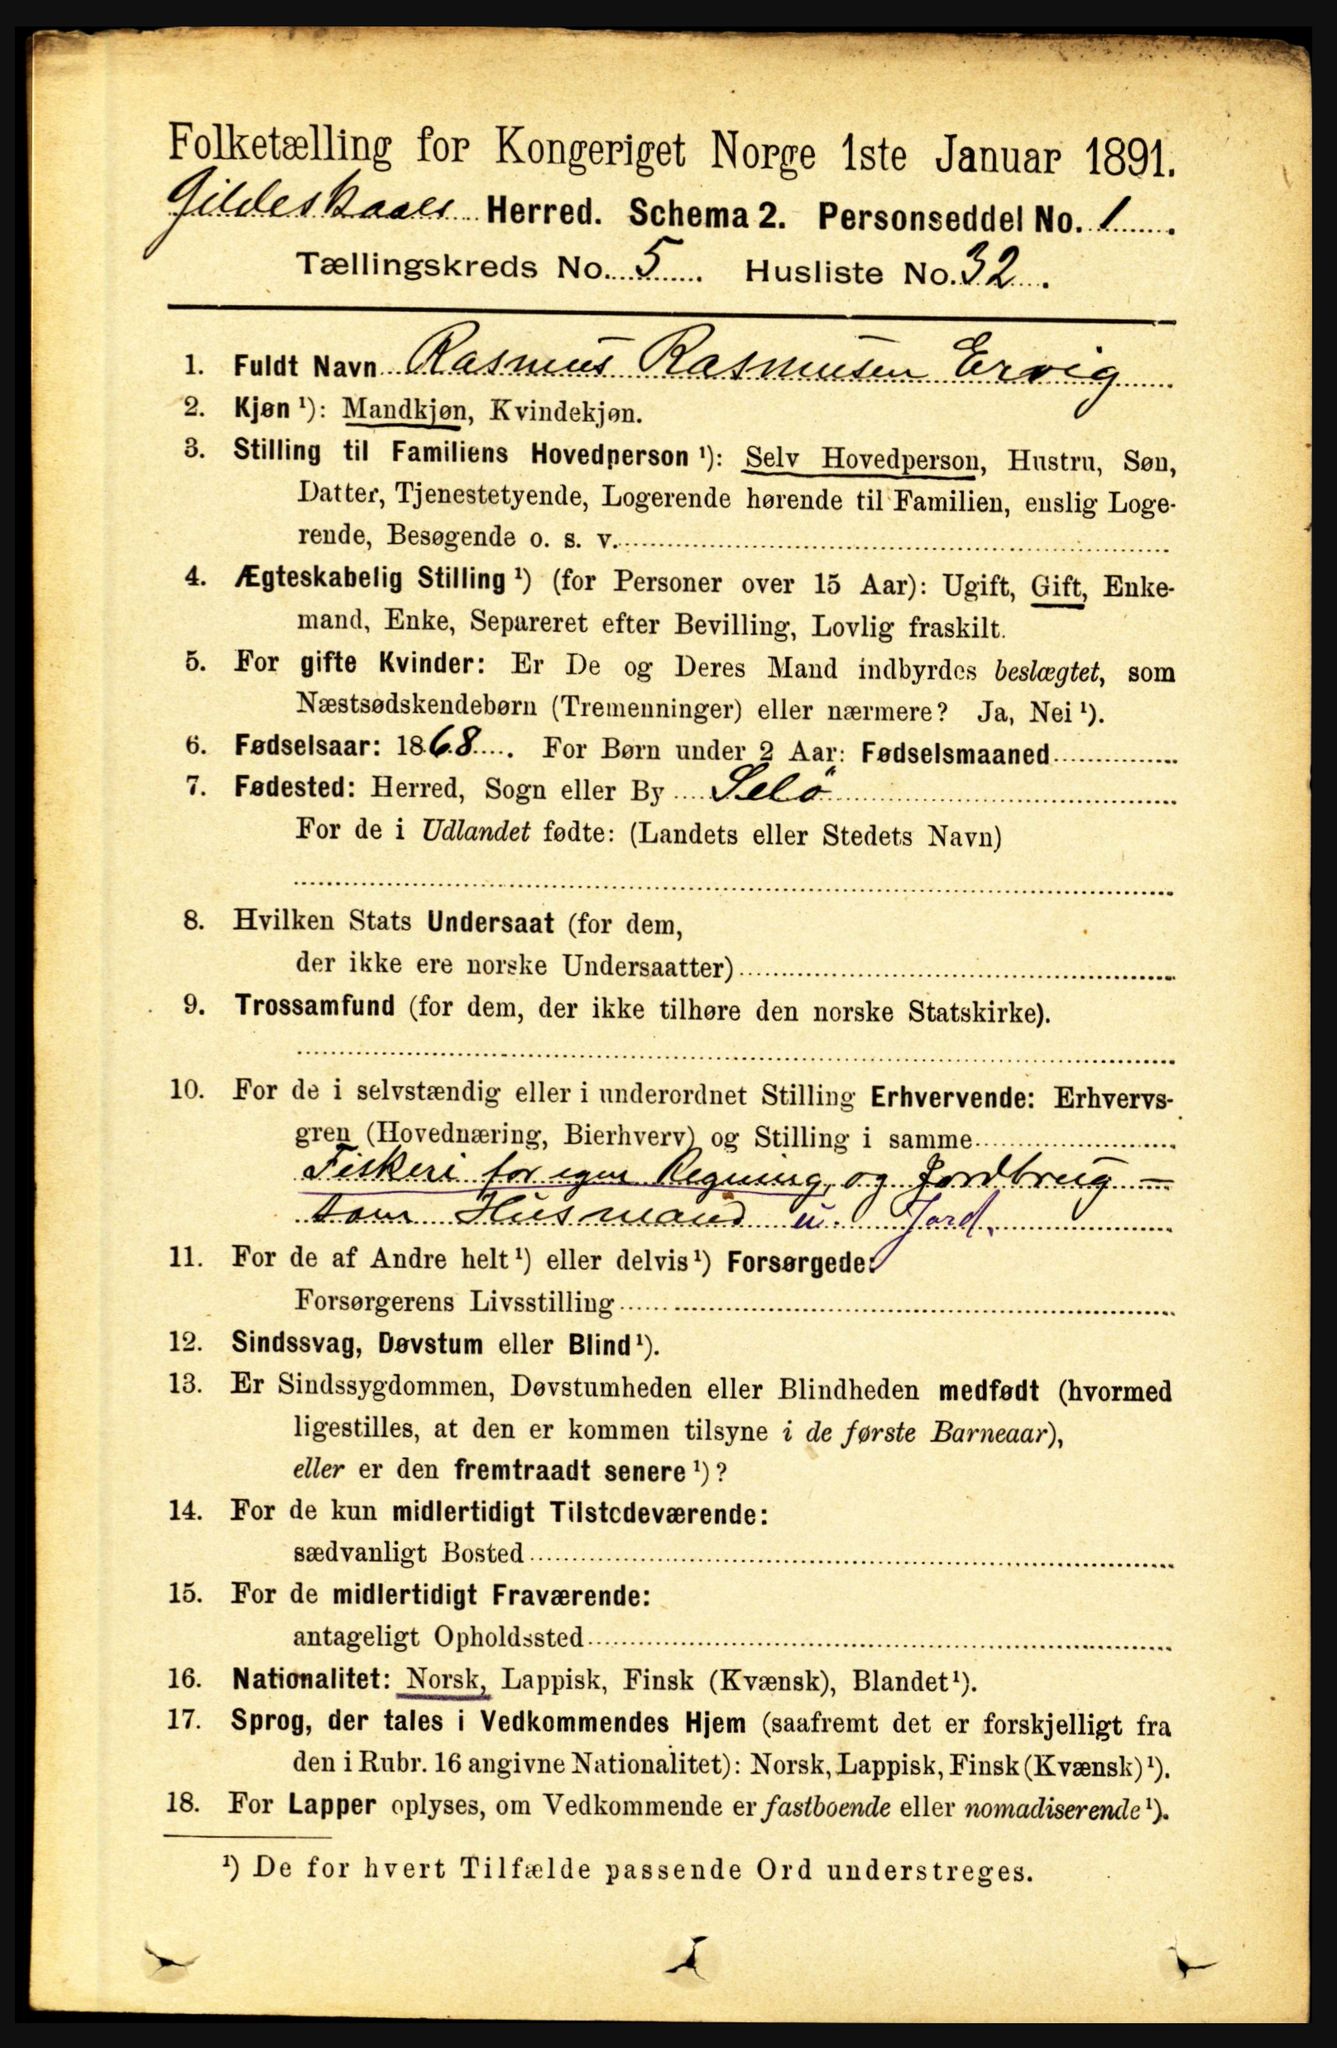 Folketælling for Kongeriget Norge 1ste Januar 1891.
Gildeskaals Herred. Schema 2. Personseddel No. 1
Tællingskreds No. 5. Husliste No. 32.
1. Fuldt Navn Rasmus Rasmusen Ervig
2. Kjøn ¹): Mandkjøn, Kvindekjøn.
3. Stilling til Familiens Hovedperson ¹): Selv Hovedperson, Hustru, Søn,
Datter, Tjenestetyende, Logerende hørende til Familien, enslig Loge-
rende, Besøgende o. s. v.
4. Ægteskabelig Stilling ¹) (for Personer over 15 Aar): Ugift, Gift, Enke-
mand, Enke, Separeret efter Bevilling, Lovlig fraskilt.
5. For gifte Kvinder: Er De og Deres Mand indbyrdes beslægtet, som
Næstsødskendebørn (Tremenninger) eller nærmere? Ja, Nei ¹).
6. Fødselsaar: 1868. For Børn under 2 Aar: Fødselsmaaned
7. Fødested: Herred, Sogn eller By Selö
For de i Udlandet fødte: (Landets eller Stedets Navn)
8. Hvilken Stats Undersaat (for dem,
der ikke ere norske Undersaatter)
9. Trossamfund (for dem, der ikke tilhøre den norske Statskirke).
10. For de i selvstændig eller i underordnet Stilling Erhvervende: Erhvervs-
gren (Hovednæring, Bierhverv) og Stilling i samme
Fiskeri for egen Regning, og Jordbrug -
som Husmand u. Jord.
11. For de af Andre helt ¹) eller delvis ¹) Forsørgede:
Forsørgerens Livsstilling
12. Sindssvag, Døvstum eller Blind ¹).
13. Er Sindssygdommen, Døvstumheden eller Blindheden medfødt (hvormed
ligestilles, at den er kommen tilsyne i de første Barneaar),
eller er den fremtraadt senere ¹)?
14. For de kun midlertidigt Tilstedeværende:
sædvanligt Bosted
15. For de midlertidigt Fraværende:
antageligt Opholdssted
16. Nationalitet: Norsk, Lappisk, Finsk (Kvænsk), Blandet ¹).
17. Sprog, der tales i Vedkommendes Hjem (saafremt det er forskjelligt fra
den i Rubr. 16 angivne Nationalitet): Norsk, Lappisk, Finsk (Kvænsk) ¹).
18. For Lapper oplyses, om Vedkommende er fastboende eller nomadiserende ¹).
¹) De for hvert Tilfælde passende Ord understreges.